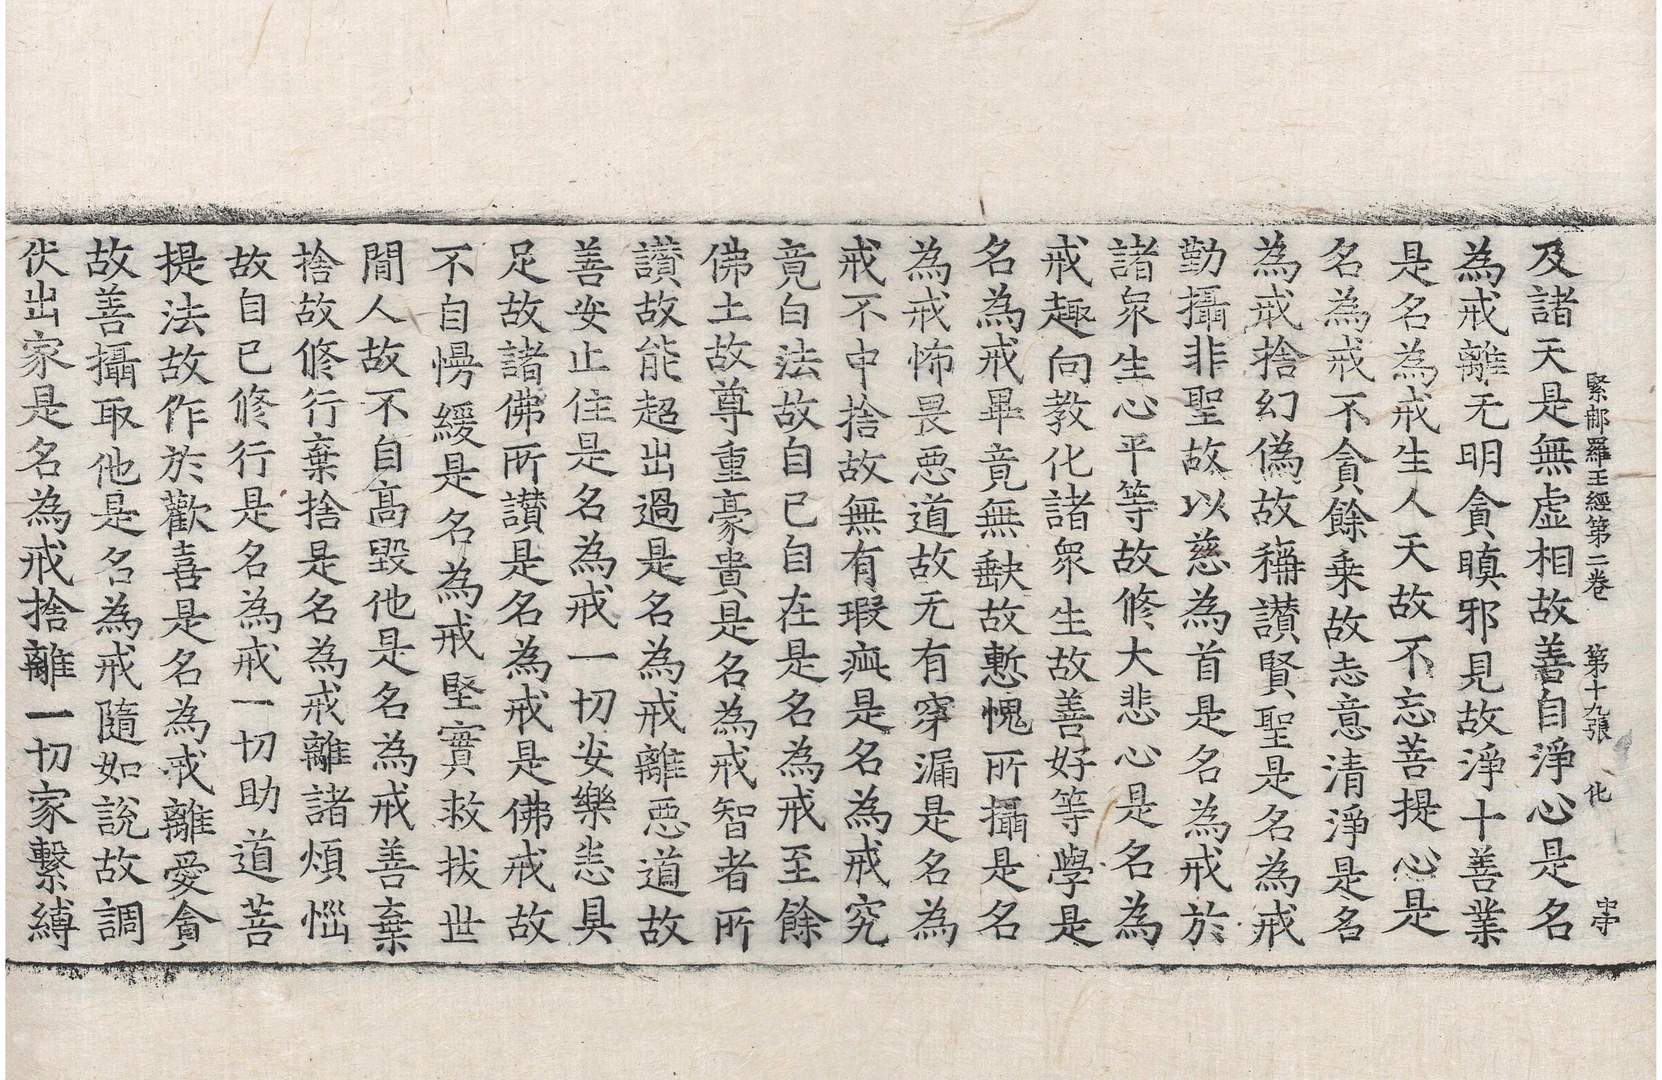 緊郍羅王經第二卷 第十九張 化
及諸天是無虛相故善自淨心是名
為戒離无明貪瞋邪見故淨十善業
是名為戒生人天故不忘菩提心是
名為戒不貪餘乗故志意清淨是名
為戒捨幻偽故稱讃賢聖是名為戒
勤攝非聖故以慈為首是名為戒於
諸衆生心平等故修大悲心是名為
戒趣向教化諸衆生故善好等學是
名為戒畢竟無缺故慙愧所攝是名
為戒怖畏惡道故无有穿漏是名為
戒不中捨故無有瑕疵是名為戒究
竟白法故自已自在是名為戒至餘
佛土故尊重豪貴是名為戒智者所
讃故能超出過是名為戒離惡道故
善安止住是名為戒一切安樂悉具
足故諸佛所讃是名為戒是佛戒故
不自慢緩是名為戒堅實救拔世
間人故不自高毀他是名為戒善棄
捨故修行棄捨是名為戒離諸煩惱
故自已修行是名為戒一切助道菩
提法故作於歡喜是名為戒離愛貪
故善攝取他是名為戒隨如說故調
伏出家是名為戒捨離一切家繫縛